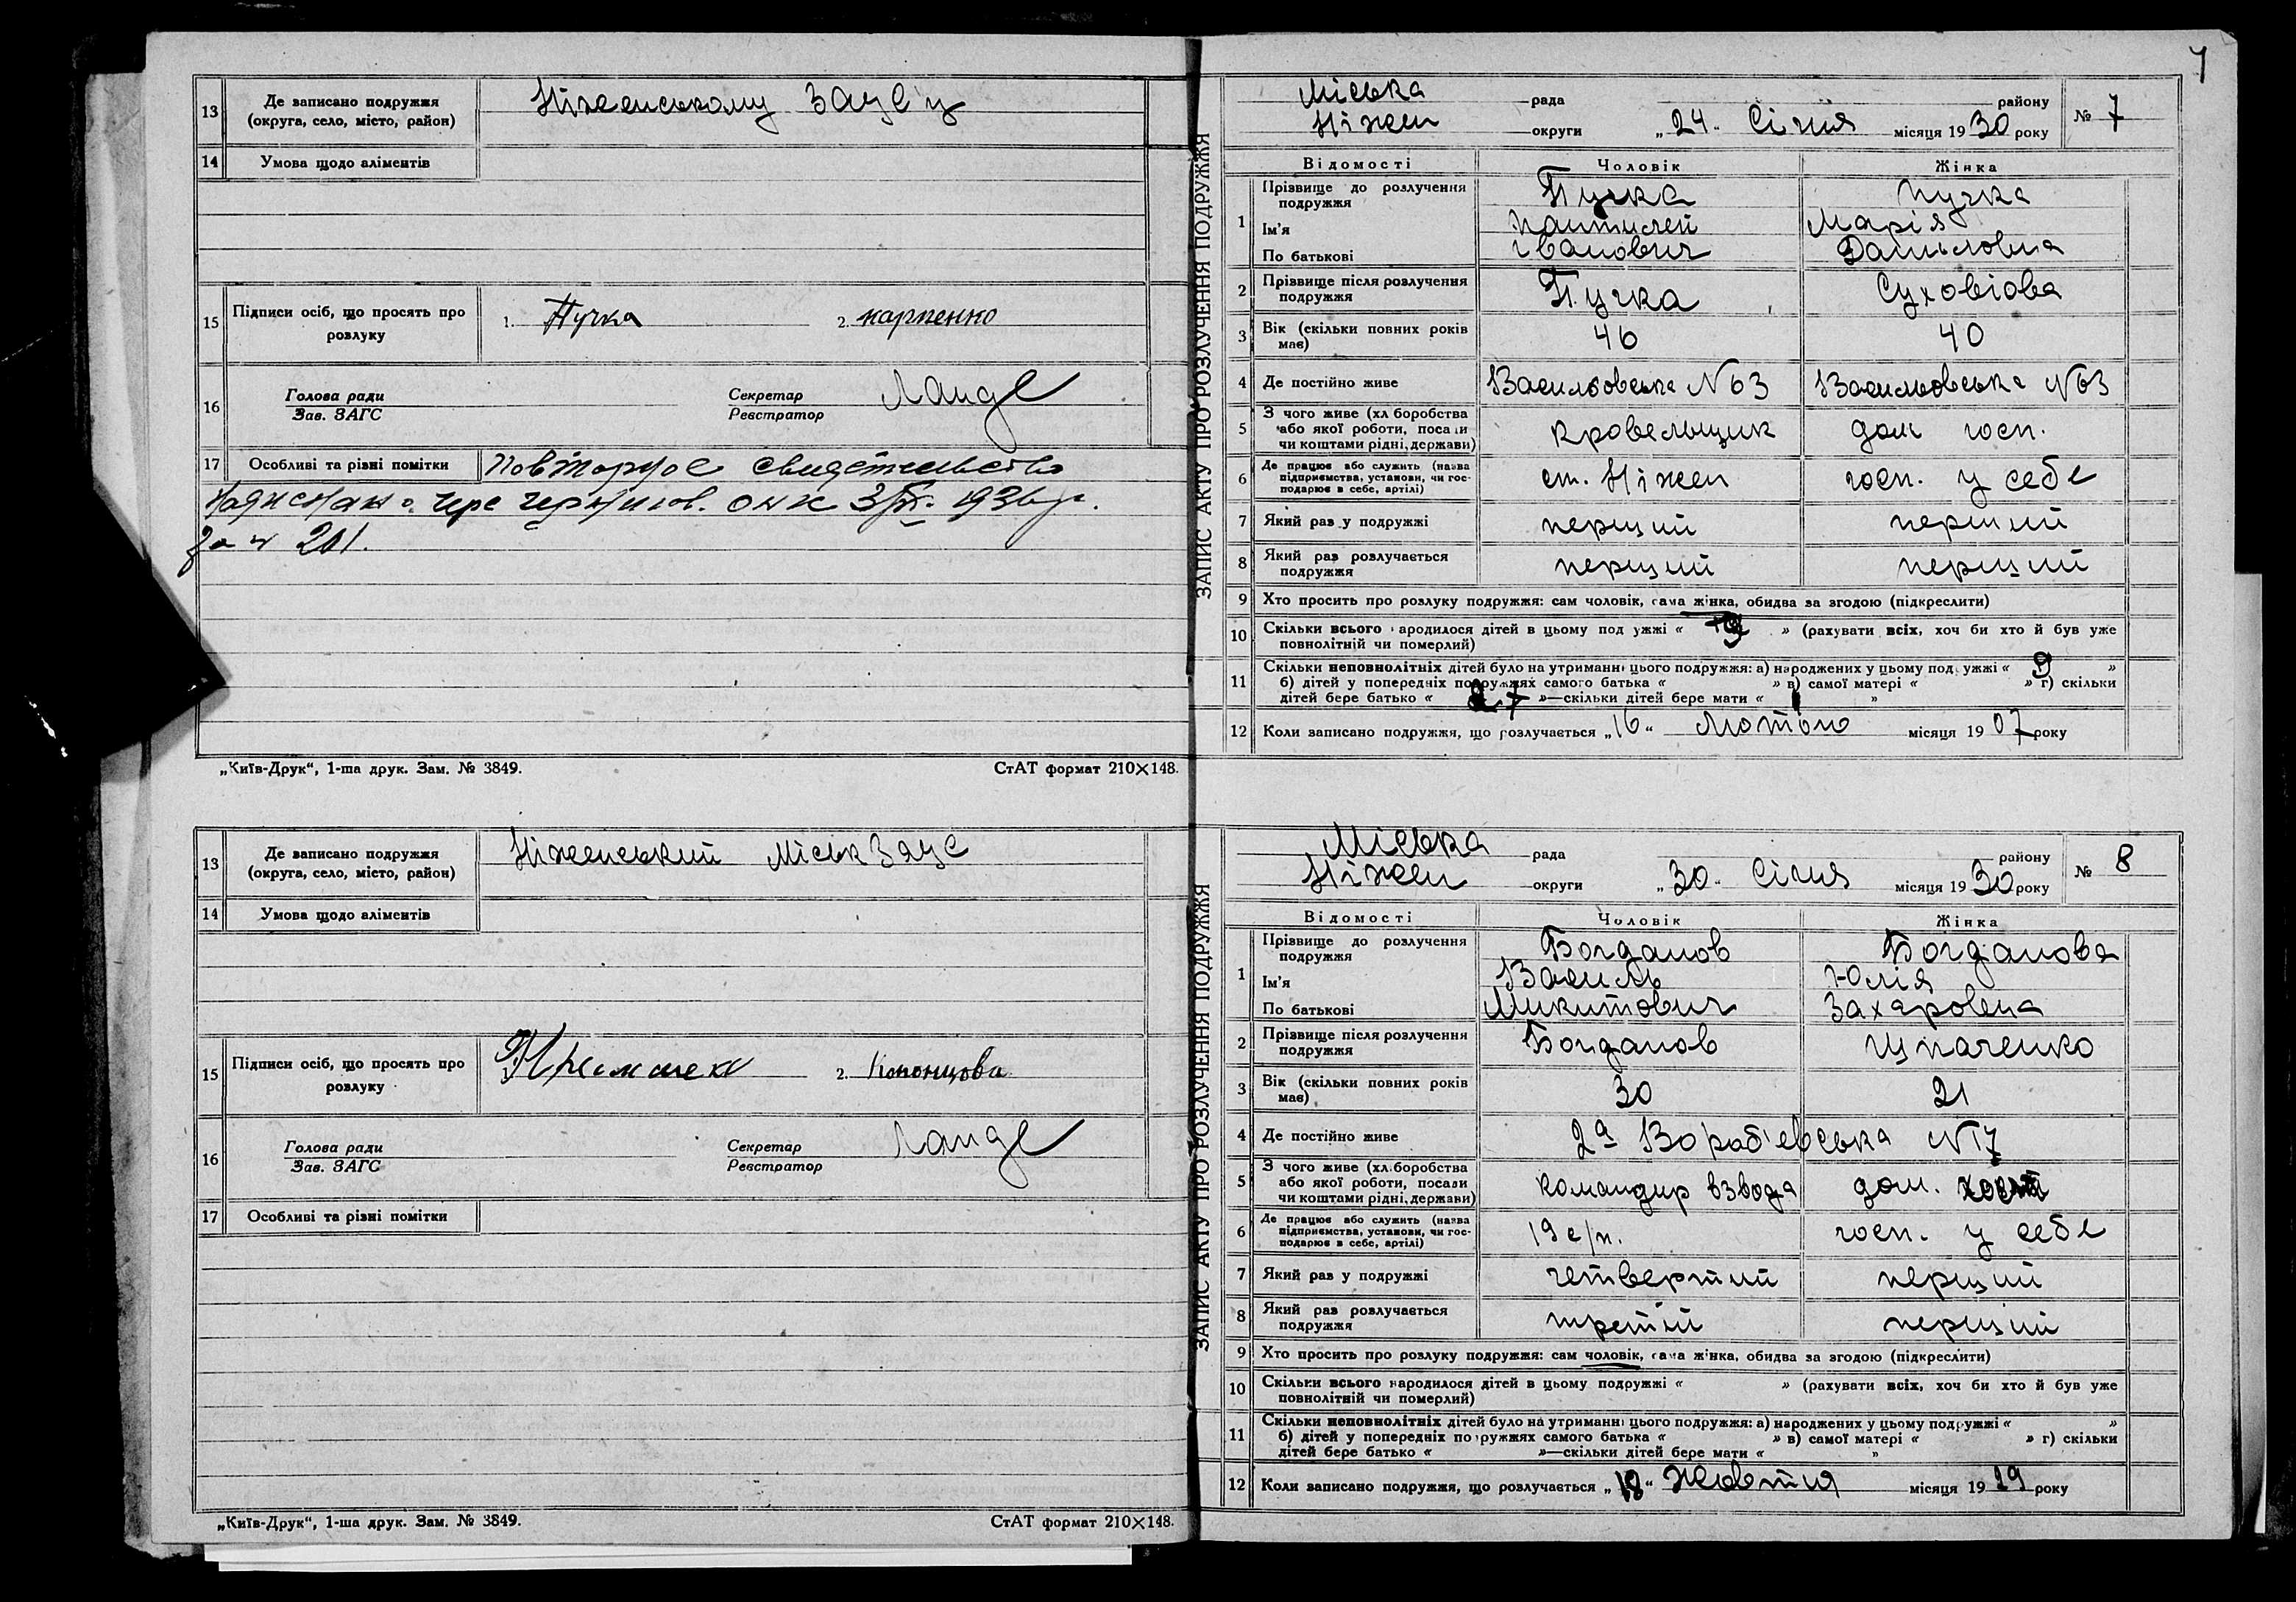 13 Де записано подружжя (округа, село, місто, район) Ніженському Загс'у
14 Умова щодо аліментів
15 Підписи осіб, що просять про розлуку 1. Пучка 2. карпенко
16 Голова ради Зав. ЗАГС Секретар Реєстратор Ланде
17 Особливі та різні помітки Повторное свидетельство
3/XI. 1936 г.
за № 201.
„Київ-Друк“, 1-ша друк. Зам. № 3849. СтАТ формат 210×148.
13 Де записано подружжя (округа, село, місто, район) Ніженський МіськЗагс
14 Умова щодо аліментів
15 Підписи осіб, що просять про розлуку 2.
16 Голова ради Зав. ЗАГС Секретар Реєстратор Ланде
17 Особливі та різні помітки
„Київ-Друк“, 1-ша друк. Зам. № 3849. СтАТ формат 210×148.
7
ЗАПИС АКТУ ПРО РОЗЛУЧЕННЯ ПОДРУЖЖЯ
Міська рада району
Ніжен округи „24“ Січня місяця 1930 року № 7
Відомості Чоловік Жінка
1 Прізвище до розлучення подружжя Пучка Пучка
Ім'я Пантилей Марія
По батькові Іванович Даниловна
2 Прізвище після розлучення подружжя Пучка Суховіова
3 Вік (скільки повних років має) 46 40
4 Де постійно живе Васильовська N 63 Васильовська N 63
5 З чого живе (хліборобства або якої роботи, посади чи коштами рідні, держави) кровельщик дом госп.
6 Де працює або служить (назва підприємства, установи, чи господарює в себе, артілі) ст. Ніжен госп. у себе
7 Який раз у подружжі перший перший
8 Який раз розлучається подружжя перший перший
9 Хто просить про розлуку подружжя: сам чоловік, сама жінка, обидва за згодою (підкреслити)
10 Скільки всього народилося дітей в цьому подружжі « 9 » (рахувати всіх, хоч би хто й був уже повнолітній чи померлий)
11 Скільки неповнолітніх дітей було на утриманні цього подружжя: а) народжених у цьому подружжі « 9 »
б) дітей у попередніх подружжях самого батька « » в) самої матері « » г) скільки
дітей бере батько « 7 »—скільки дітей бере мати « »
12 Коли записано подружжя, що розлучається „16“ Лютого місяця 1907 року
ЗАПИС АКТУ ПРО РОЗЛУЧЕННЯ ПОДРУЖЖЯ
Міська рада району
Ніжен округи „30“ Січня місяця 1930 року № 8
Відомості Чоловік Жінка
1 Прізвище до розлучення подружжя Богданов Богданова
Ім'я Василь Юлія
По батькові Микитович Захаровна
2 Прізвище після розлучення подружжя Богданов
3 Вік (скільки повних років має) 30 21
4 Де постійно живе 2а Вораб'евська N 17
5 З чого живе (хліборобства або якої роботи, посади чи коштами рідні, держави) командир взвода дом.
6 Де працює або служить (назва підприємства, установи, чи господарює в себе, артілі) 19 с/п. госп. у себе
7 Який раз у подружжі четвертий перший
8 Який раз розлучається подружжя третій перший
9 Хто просить про розлуку подружжя: сам чоловік, сама жінка, обидва за згодою (підкреслити)
10 Скільки всього народилося дітей в цьому подружжі « » (рахувати всіх, хоч би хто й був уже повнолітній чи померлий)
11 Скільки неповнолітніх дітей було на утриманні цього подружжя: а) народжених у цьому подружжі « »
б) дітей у попередніх подружжях самого батька « » в) самої матері « » г) скільки
дітей бере батько « »—скільки дітей бере мати « »
12 Коли записано подружжя, що розлучається „18“ Жовтня місяця 1929 року